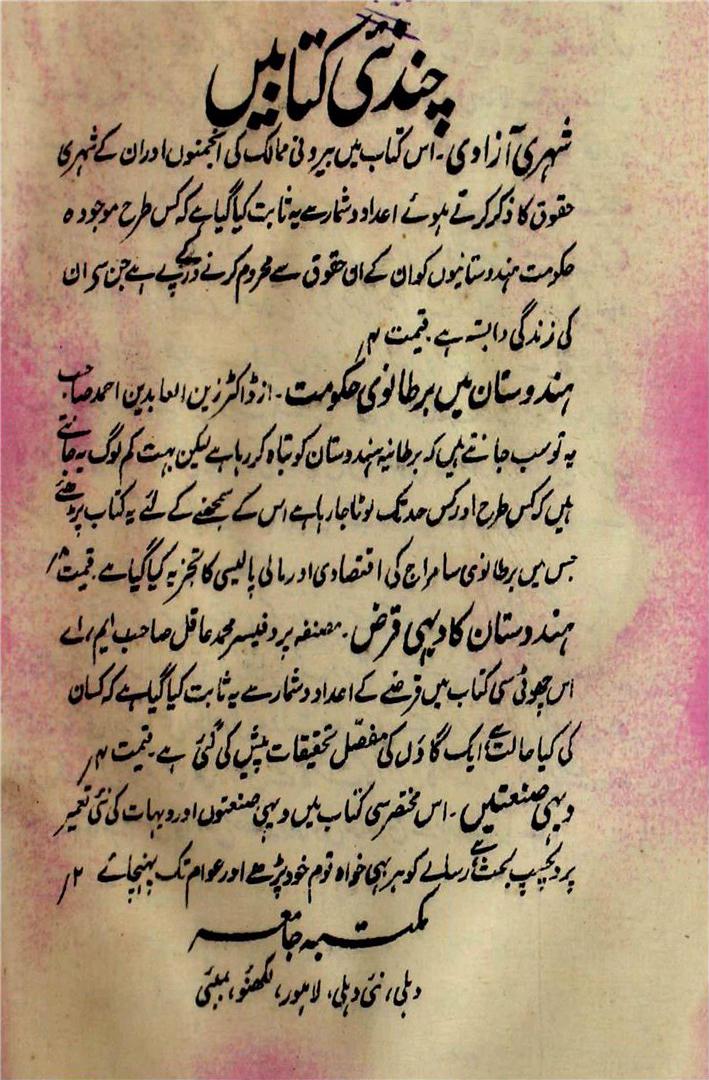 چند نئی کتابیں
شہری آزادی ۔ اس کتاب میں بیرونی ممالک کی انجمنوں اور ان کے شہری
حقوق کا ذکر کرتے ہوئے اعداد و شمار سے یہ ثابت کیا گیا ہے کہ کس طرح موجودہ
حکومت ہندوستانیوں کو ان کے ان حقوق سے محروم کرنے کے درپے ہے جن سے ان
کی زندگی وابستہ ہے ۔ قیمت ۴؍
ہندوستان میں برطانوی حکومت ۔ از ڈاکٹر زین العابدین احمد صاحب
یہ تو سب جانتے ہیں کہ برطانیہ ہندوستان کو تباہ کر رہا ہے لیکن بہت کم لوگ یہ جانتے
ہیں کہ کس طرح اور کس حد تک لوٹا جا رہا ہے اس کے سمجھنے کے لئے یہ کتاب پڑھئے
جس میں برطانوی سامراج کی اقتصادی اور مالی پالیسی کا تجزیہ کیا گیا ہے قیمت ۸؍
ہندوستان کا دیہی قرض ۔ مصنفہ پروفیسر محمد عاقل صاحب ایم، اے
اس چھوٹی سی کتاب میں قرضے کے اعداد و شمار سے یہ ثابت کیا گیا ہے کہ کسان
کی کیا حالت ہے ایک گاؤں کی مفصّل تحقیقات پیش کی گئی ہے ۔ قیمت ۴؍
دیہی صنعتیں ۔ اس مختصر سی کتاب میں دیہی صنعتوں اور دیہات کی نئی تعمیر
پر دلچسپ بحث ہے رسالے کو ہر بہی خواہ قوم خود پڑھے اور عوام تک پہنچائے ۲؍
مکتبہ جامعہ
دہلی، نئی دہلی، لاہور، لکھنؤ، بمبئی